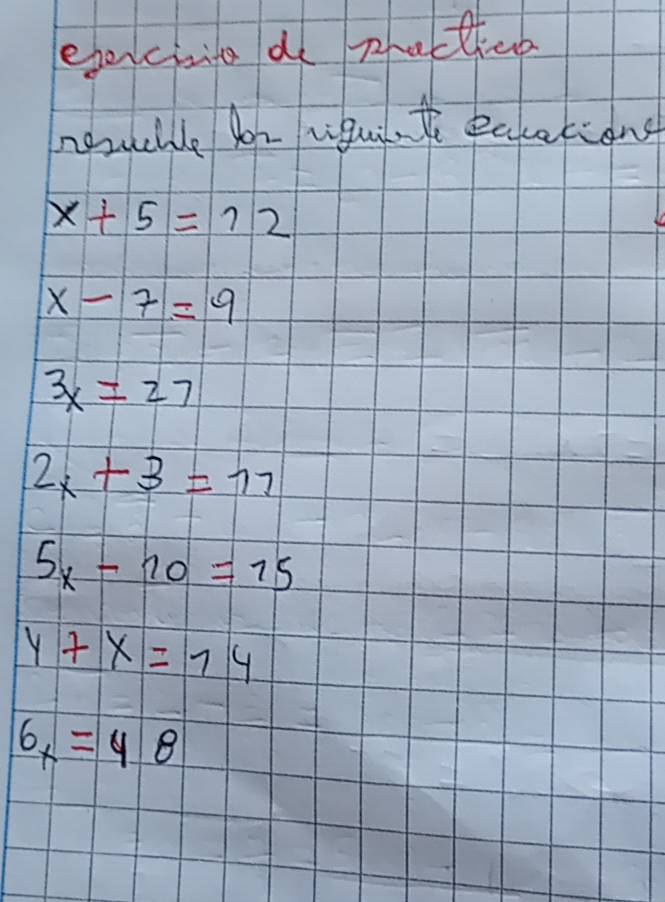 ejercisio de practica
resuelve los siguiente ecuacions
x + 5 = 12
x - 7 = 9
3x = 27
2x + 3 = 11
5x - 10 = 15
4 + x = 14
6x = 48